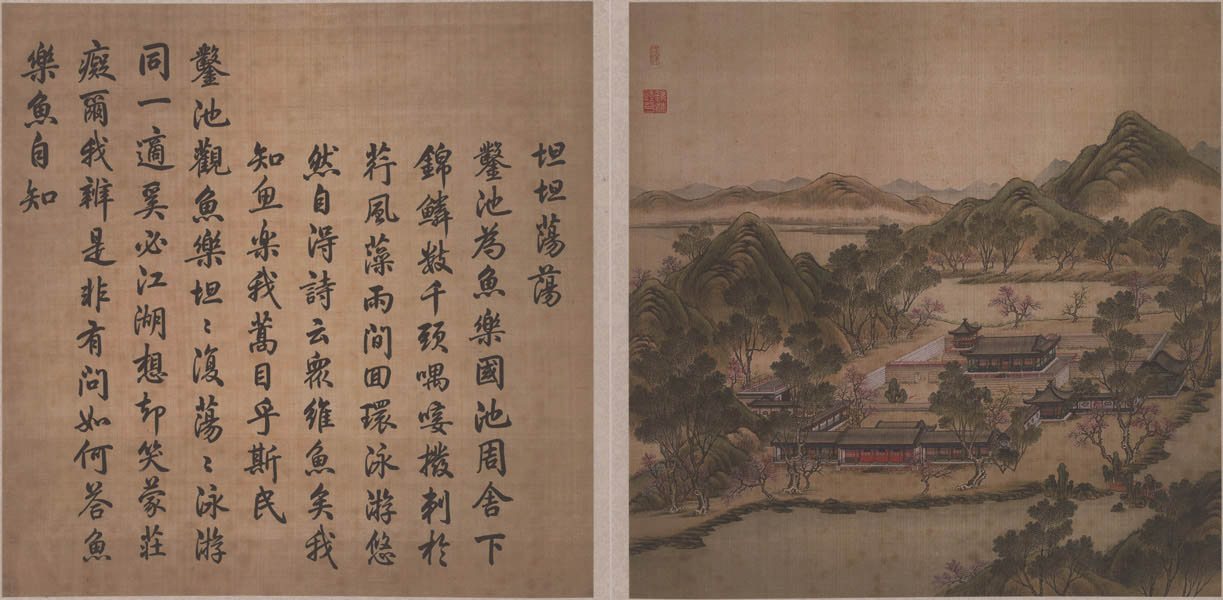 坦坦蕩蕩
鑿池為魚樂國池周舍下
錦鱗數千頭喁唼撥刺於
荇風藻雨間回環泳游悠
然自淂詩云眾維魚矣我
知魚樂我蒿目乎斯民
鑿池觀魚樂坦〻復蕩〻泳游
同一適奚必江湖想却笑蒙莊
癡爾我辨是非有問如何答魚
樂魚自知